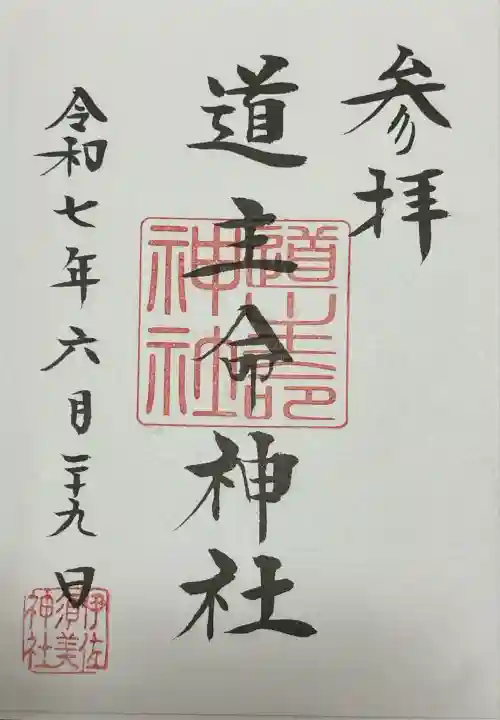 参拝
道主命神社
道主命
神社
令和七年六月二十九日
伊佐
須美
神社